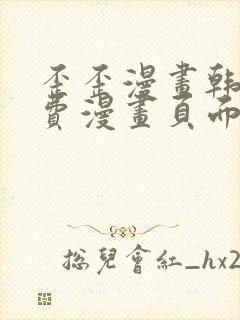 歪歪漫畫韩
費漫畫頁而
総兒會紅_hx2